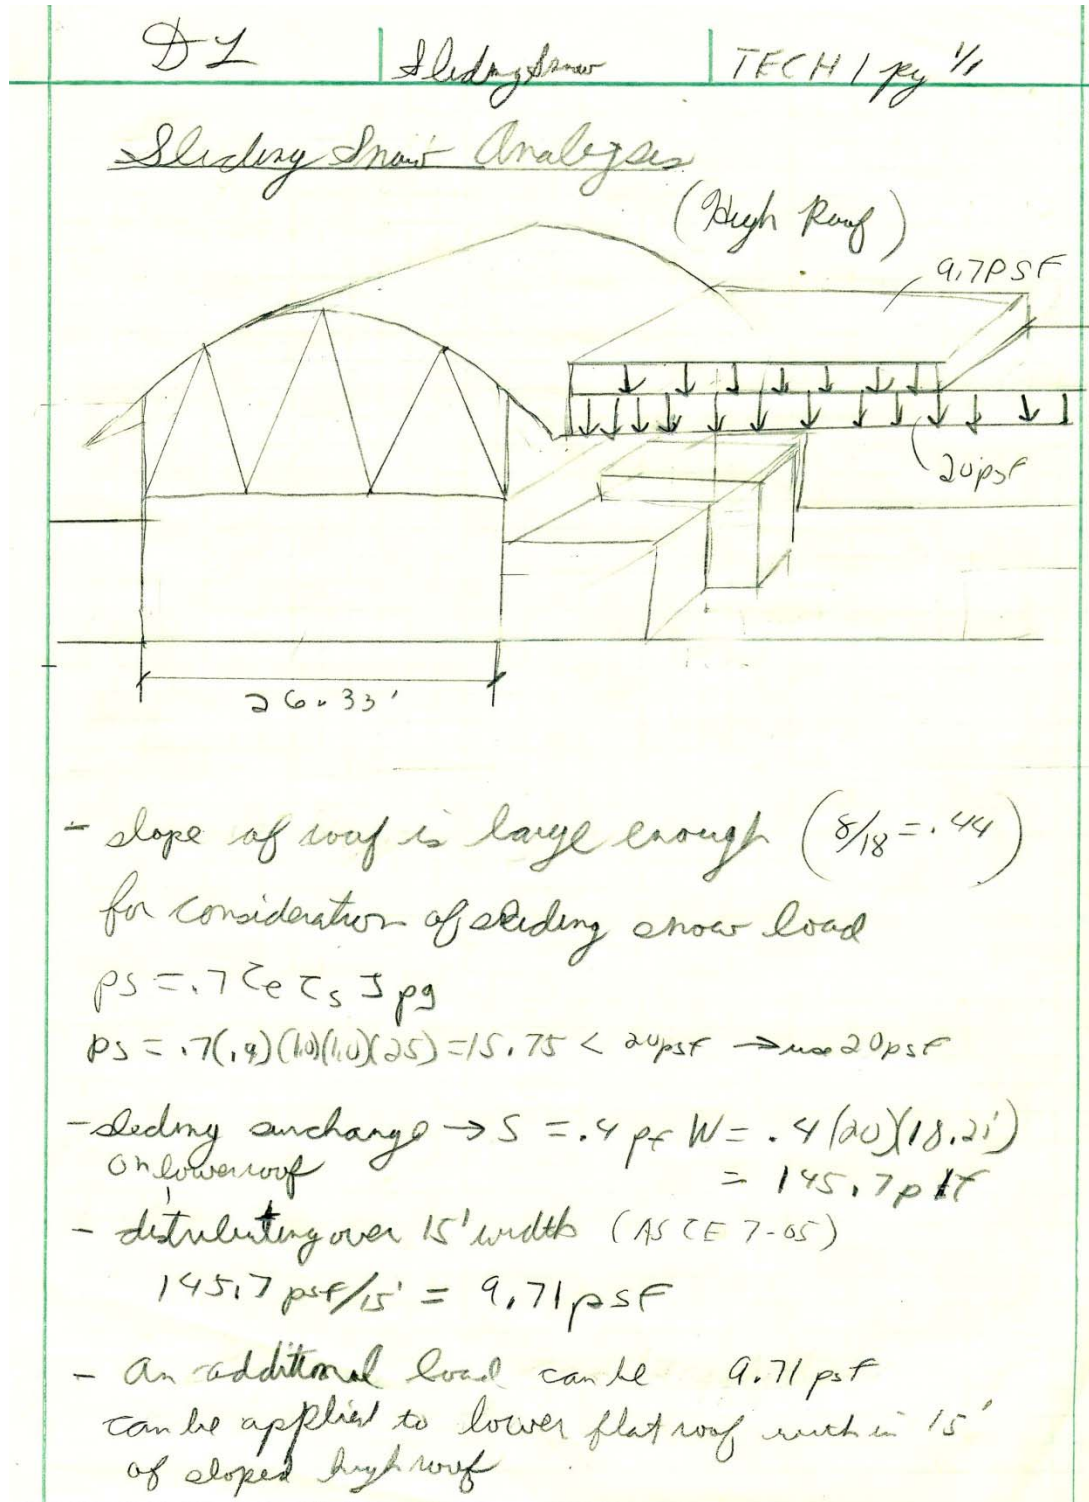 DL
Sliding Snow
TECH 1 pg 1/1
Sliding Snow Analyses
(High Roof)
9.7PSF
20psf
26.33'
- slope of roof is large enough (8/18 = .44)
for consideration of sliding snow load
ps = .7 Ce Cs I pg
ps = .7(.9)(1.0)(1.0)(25) = 15.75 < 20psf → use 20psf
- sliding surcharge → S = .4 pf W = .4(20)(18.21')
on lower roof
= 145.7 plf
- distributing over 15' width (ASCE 7-05)
145.7 psf/15' = 9.71psf
- An additional load can be 9.71 psf
can be applied to lower flat roof with in 15'
of sloped high roof